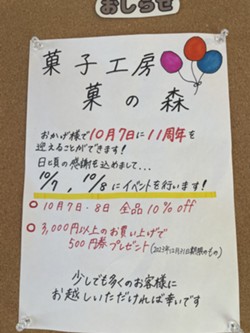 おしらせ
菓子工房
菓の森
おかげ様で10月7日に11周年を
迎えることができます!
日ヒ頃の感謝を込めまして...
10/7、10/8にイベントを行います!
10月7日・8日 全品10% off
3,000円以上のお買い上げで
500円券プレゼント(2023年12月31日期限のもの)
少しでも多くのお客様に
お越しいただければ幸いです